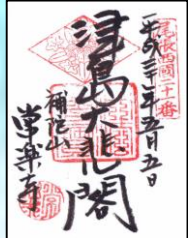 尾張西國二十一番
平成二十一年五月五日
津島大悲閣
補陀山
常楽寺